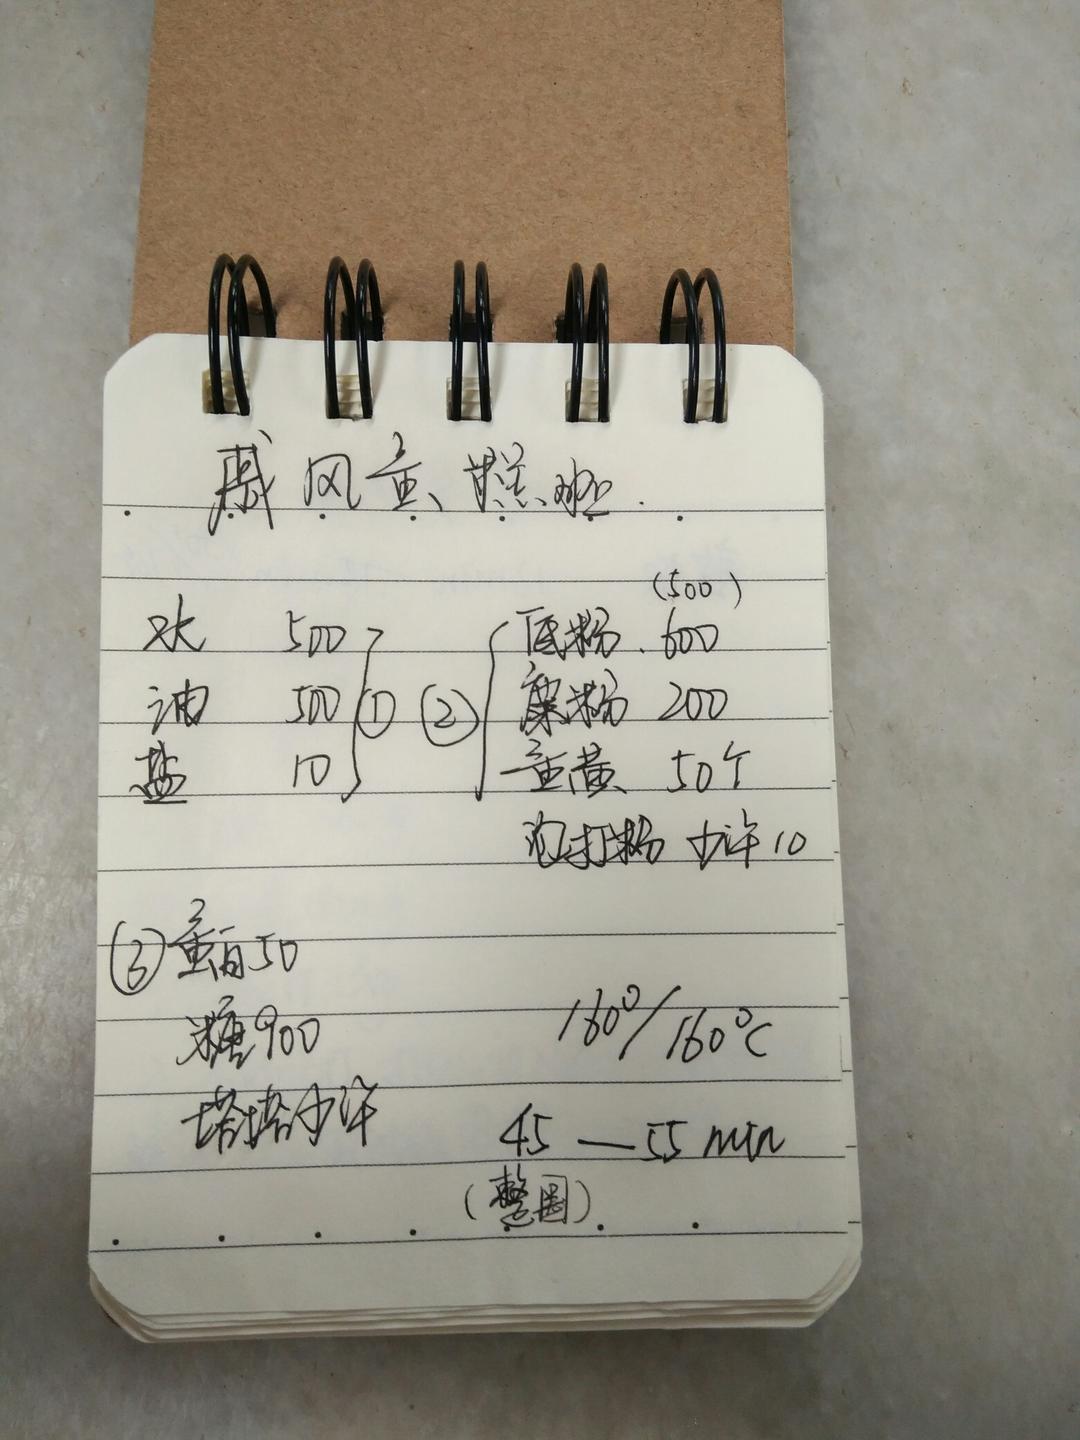 戚风蛋糕胚.
水 500
油 500 ①
盐 10
(500)
② 低粉.600
粟粉 200
蛋黄 50个
泡打粉 少许10
③蛋白50
糖900
塔塔少许
160°/160°C
45—55min
(整圆)